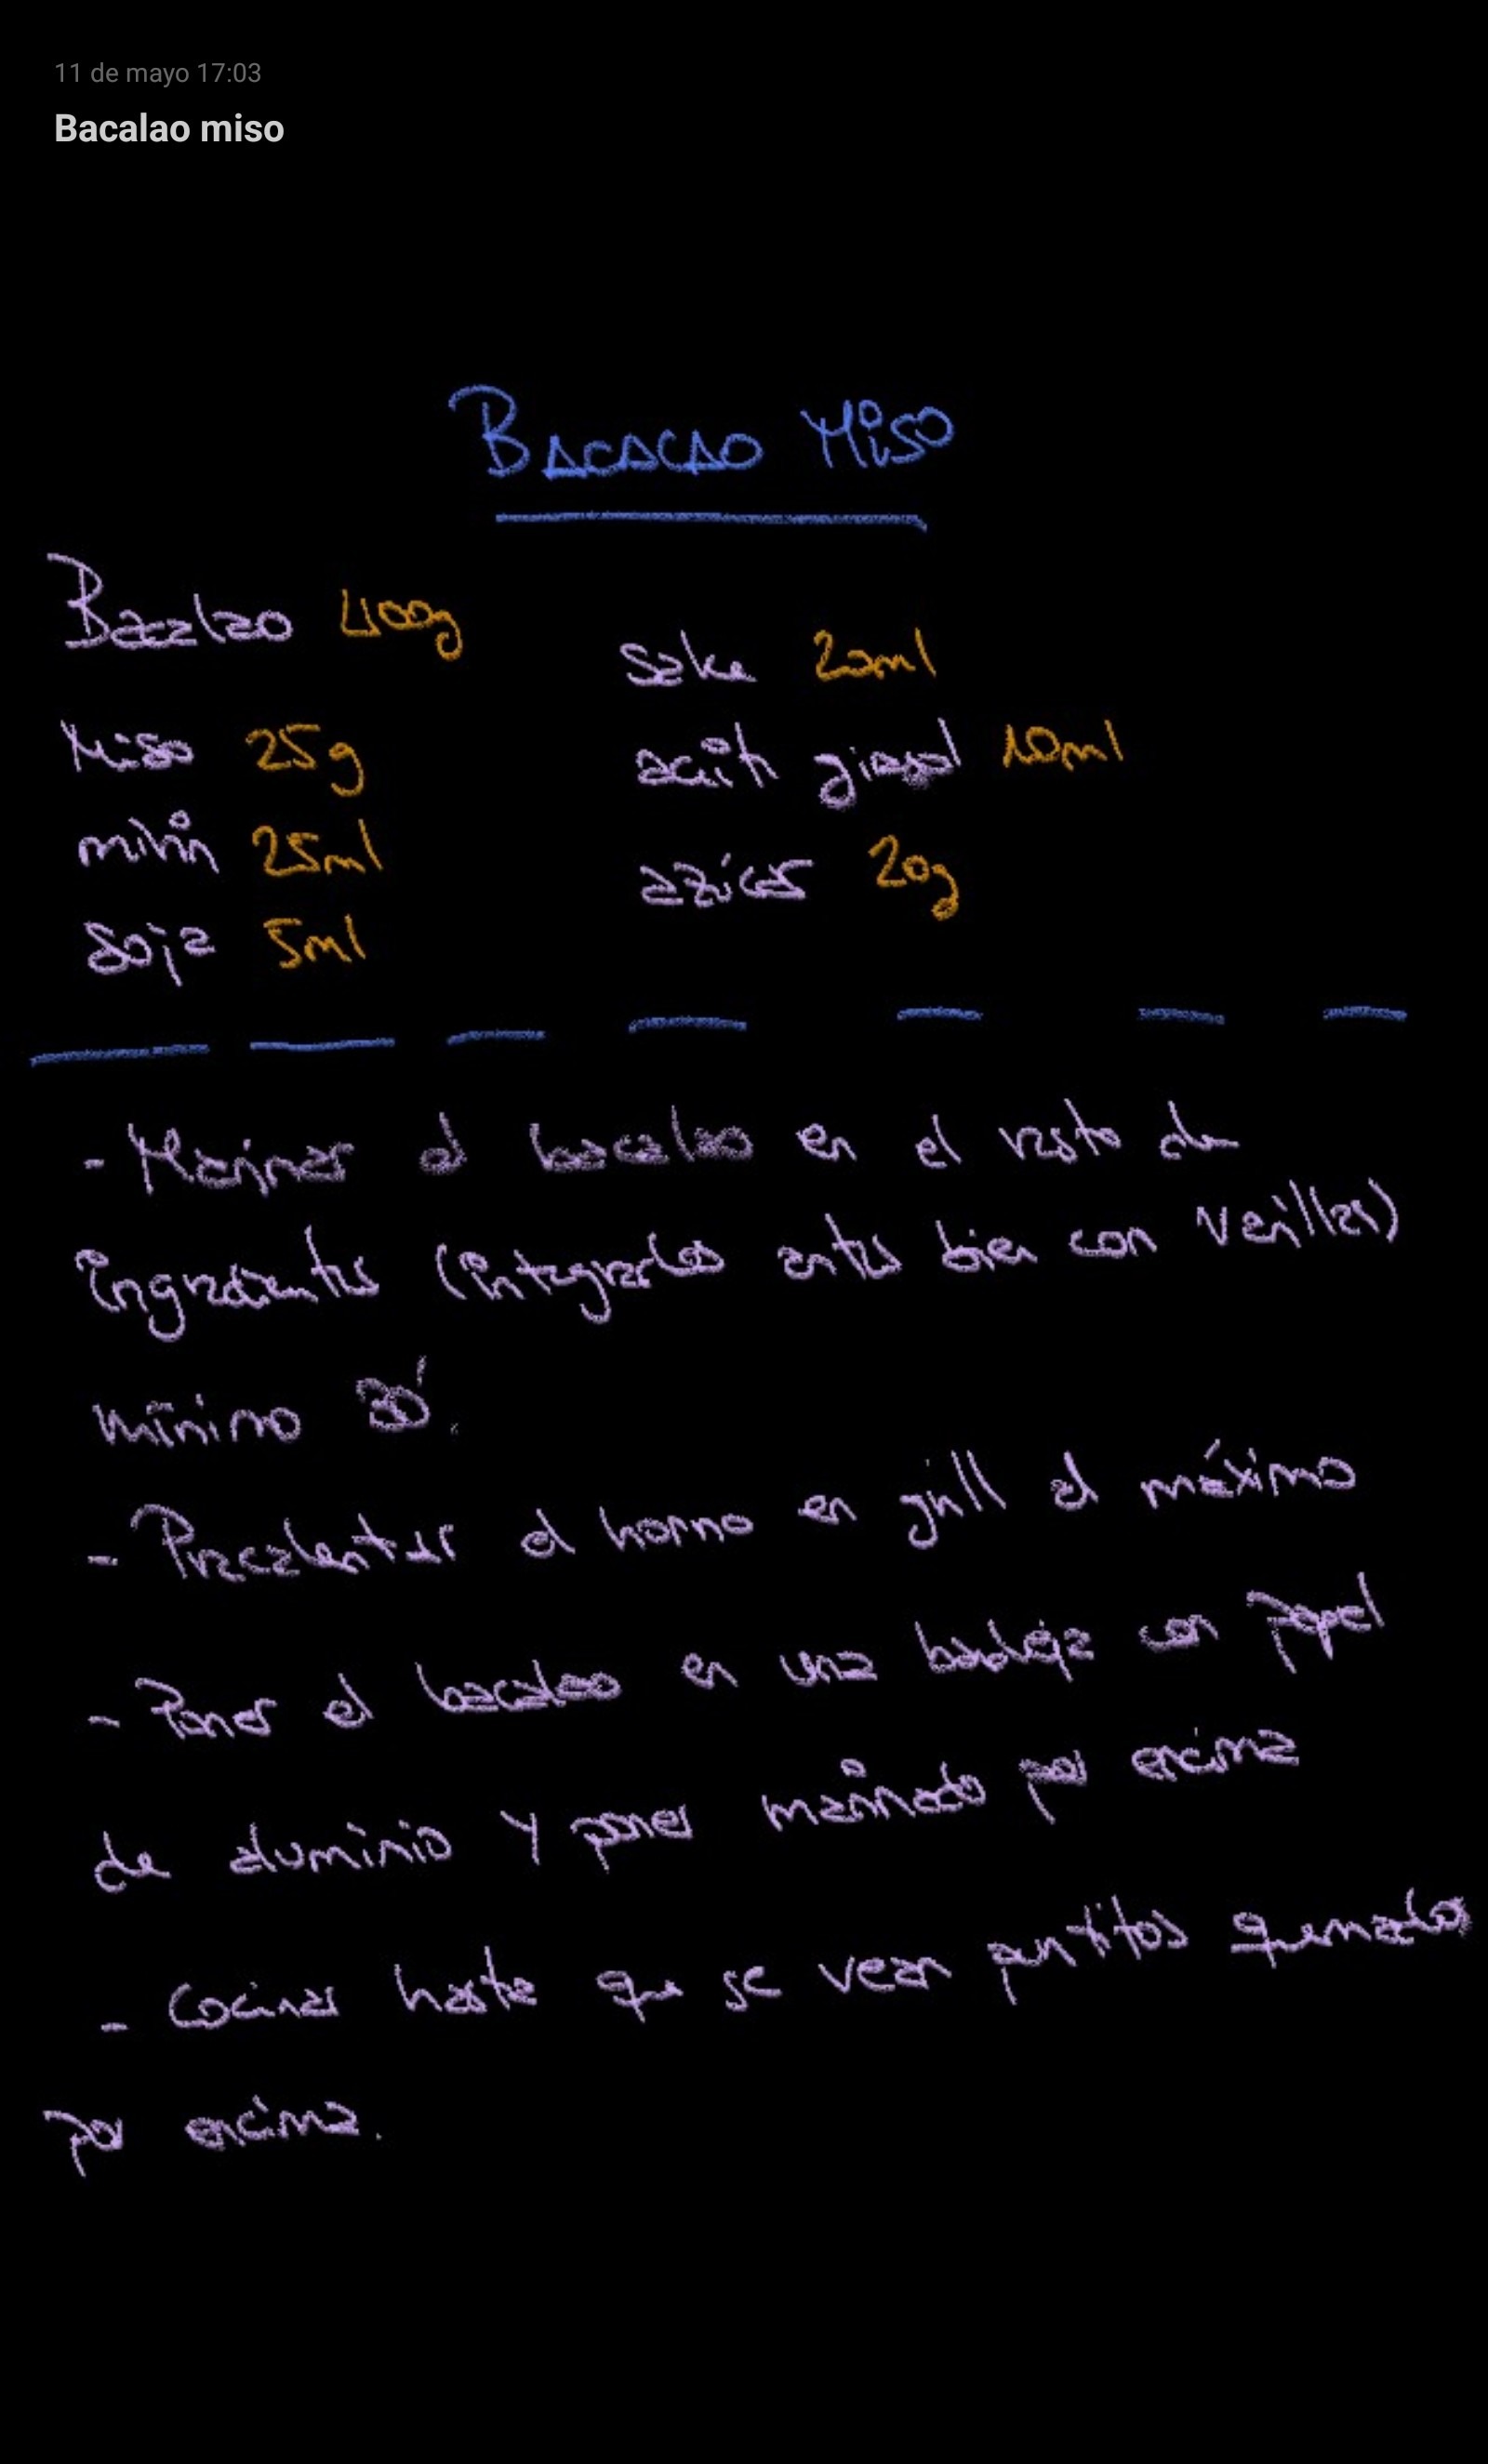 11 de mayo 17:03
Bacalao miso
BACALAO MISO
Bacalao 400g
Sake 20ml
Miso 25g
aceite girasol 10ml
mirin 25ml
azúcar 20g
Soja 5ml
- Marinar el bacalao en el resto de
ingredientes (integrarlos antes bien con varillas)
mínimo 30'.
- Precalentar el horno en grill al máximo
- Poner el bacalao en una bandeja con papel
de aluminio y poner marinado por encima
- Cocinar hasta que se vean puntitos quemados
por encima.